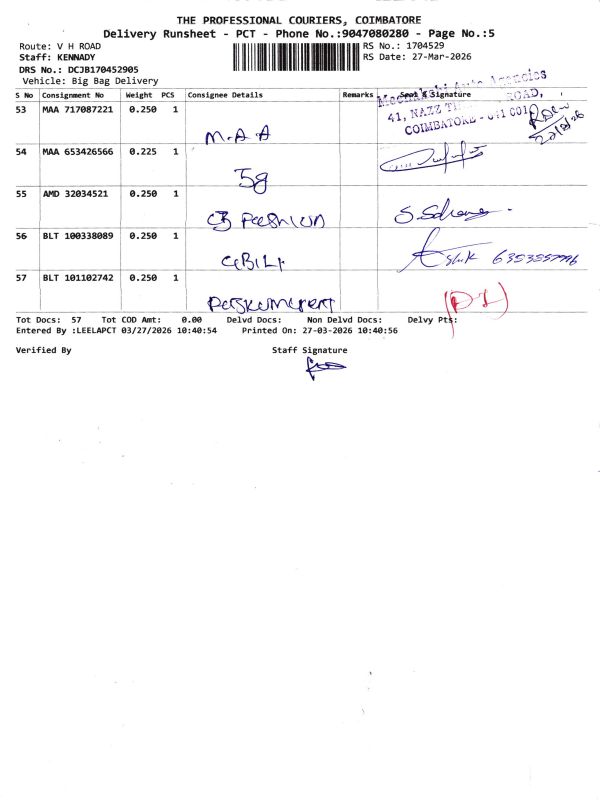 THE PROFESSIONAL COURIERS, COIMBATORE
Delivery Runsheet - PCT - Phone No.:9047080280 - Page No.:5
Route: V H ROAD
RS No.: 1704529
Staff: KENNADY
RS Date: 27-Mar-2026
DRS No.: DCJB170452905
Vehicle: Big Bag Delivery
S No Consignment No Weight PCS Consignee Details Remarks Seal & Signature
Agencies
41, NAZZ ROAD,
COIMBATORE - 641 001
53 MAA 717087221 0.250 1
M.A.A
54 MAA 653426566 0.225 1
5g
55 AMD 32034521 0.250 1
56 BLT 100338089 0.250 1
57 BLT 101102742 0.250 1
Tot Docs: 57 Tot COD Amt: 0.00 Delvd Docs: Non Delvd Docs: Delvy Pts:
Entered By :LEELAPCT 03/27/2026 10:40:54 Printed On: 27-03-2026 10:40:56
Verified By Staff Signature